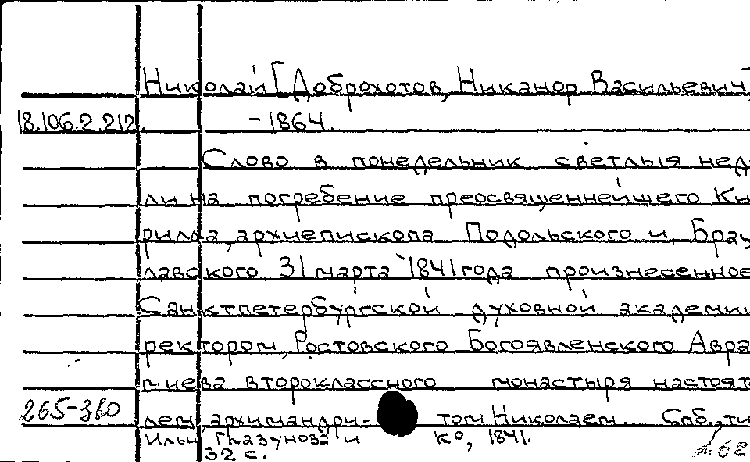 Николай [Доброхотов, Никанор Васильевич]
18.106.2.212. -1864.
Слово в понедельник светлыя нед
ли на погребение преосвященнейшего Ки
рилла, архиепископа Подольского и Брац
лавского 31 марта 1841 года произнесенное
Санктпетербургской духовной академии
ректором, Ростовского Богоявленского Авра
миева второклассного монастыря настоят
265-310 лем, архимандри- том Николаем. Спб., ти
Ильи Глазунова и Ко, 1841.
32 с.